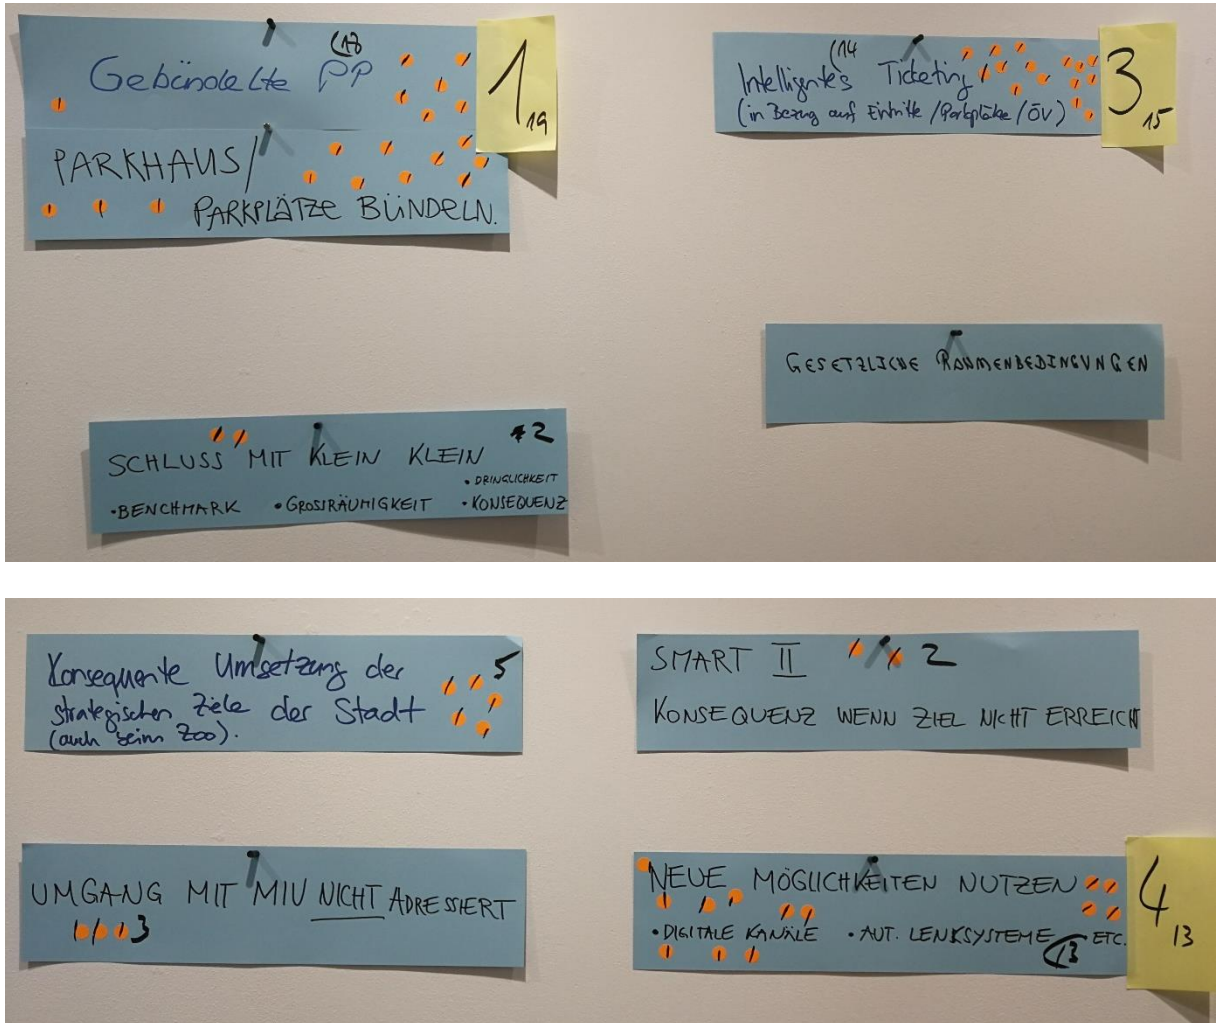 (18
Gebündelte PP
1 19
PARKHAUS/
PARKPLÄTZE BÜNDELN.
(14
Intelligentes Ticketing
(in Bezug auf Eintritte / Parkplätze / ÖV)
3 15
GESETZLICHE RAHMENBEDINGUNGEN
2
SCHLUSS MIT KLEIN KLEIN
• DRINGLICHKEIT
• BENCHMARK • GROSSRÄUMIGKEIT • KONSEQUENZ
Konsequente Umsetzung der 5
strategischen Ziele der Stadt
(auch beim Zoo).
SMART II 2
KONSEQUENZ WENN ZIEL NICHT ERREICHT
UMGANG MIT MIV NICHT ADRESSIERT
3
NEUE MÖGLICHKEITEN NUTZEN
• DIGITALE KANÄLE • AUT. LENKSYSTEME ETC.
(13
4 13